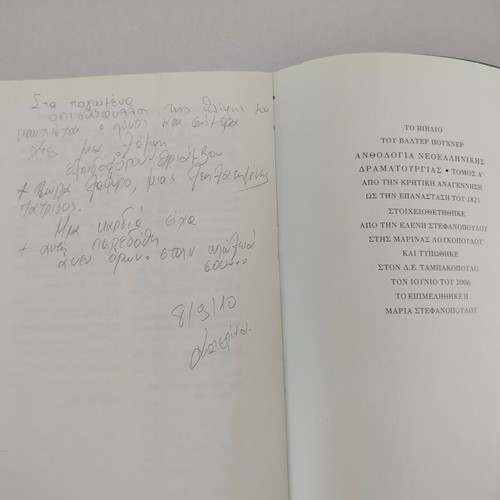 Στα παγωμένα
της λίμνης του
ο πόνος και σήμερα
χτες μια λάμψη
ελπιδοφόρου θριάμβου
+ τώρα μιας λεηλατημένης
πατρίδος.
Μια καρδιά είχα
+ αυτή παρεδόθη
άνευ όρων στην απώλειά
σου...
8/9/10
Κατερίνα
ΤΟ ΒΙΒΛΙΟ
ΤΟΥ ΒΑΛΤΕΡ ΠΟΥΧΝΕΡ
ΑΝΘΟΛΟΓΙΑ ΝΕΟΕΛΛΗΝΙΚΗΣ
ΔΡΑΜΑΤΟΥΡΓΙΑΣ • ΤΟΜΟΣ Α΄
ΑΠΟ ΤΗΝ ΚΡΗΤΙΚΗ ΑΝΑΓΕΝΝΗΣΗ
ΩΣ ΤΗΝ ΕΠΑΝΑΣΤΑΣΗ ΤΟΥ 1821
ΣΤΟΙΧΕΙΟΘΕΤΗΘΗΚΕ
ΑΠΟ ΤΗΝ ΕΛΕΝΗ ΣΤΕΦΑΝΟΠΟΥΛΟΥ
ΣΤΗΣ ΜΑΡΙΝΑΣ ΛΟΥΚΟΠΟΥΛΟΥ
ΚΑΙ ΤΥΠΩΘΗΚΕ
ΣΤΟΝ Δ.Ε. ΤΑΜΠΑΚΟΠΟΥΛΟ
ΤΟΝ ΙΟΥΝΙΟ ΤΟΥ 2006
ΤΟ ΕΠΙΜΕΛΗΘΗΚΕ Η
ΜΑΡΙΑ ΣΤΕΦΑΝΟΠΟΥΛΟΥ